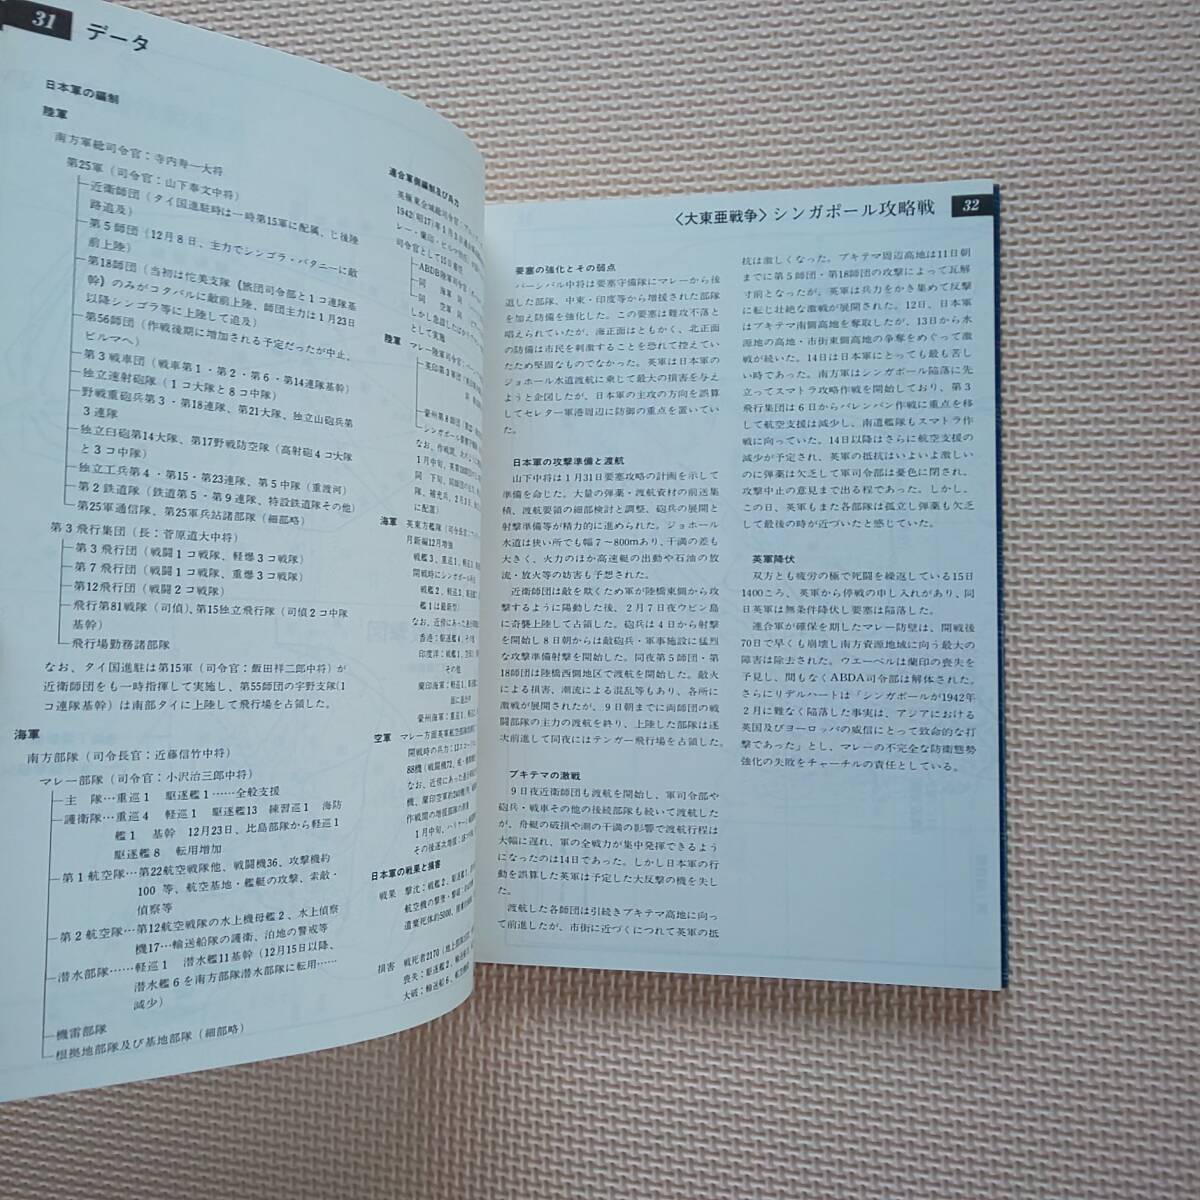 31
データ
日本軍の編制
陸軍
南方軍総司令官：寺内寿一大将
第25軍（司令官：山下奉文中将）
近衛師団（タイ国進駐時は一時第15軍に配属、じ後陸
路追及）
第5師団（12月8日、主力でシンゴラ・パタニーに敵
前上陸）
第18師団（当初は佗美支隊（旅団司令部と1コ連隊基
幹）のみがコタバルに敵前上陸、師団主力は1月23日
以降シンゴラ等に上陸して追及）
第56師団（作戦後期に増加される予定だったが中止、
ビルマへ）
第3戦車団（戦車第1・第2・第6・第14連隊基幹）
独立速射砲隊（1コ大隊と8コ中隊）
野戦重砲兵第3・第18連隊、第21大隊、独立山砲兵第
3連隊
独立臼砲第14大隊、第17野戦防空隊（高射砲4コ大隊
と3コ中隊）
独立工兵第4・第15・第23連隊、第5中隊（重渡河）
第2鉄道隊（鉄道第5・第9連隊、特設鉄道隊その他）
第25軍通信隊、第25軍兵站諸部隊（細部略）
第3飛行集団（長：菅原道大中将）
第3飛行団（戦闘1コ戦隊、軽爆3コ戦隊）
第7飛行団（戦闘1コ戦隊、重爆3コ戦隊）
第12飛行団（戦闘2コ戦隊）
飛行第81戦隊（司偵）、第15独立飛行隊（司偵2コ中隊
基幹）
飛行場勤務諸部隊
なお、タイ国進駐は第15軍（司令官：飯田祥二郎中将）が
近衛師団をも一時指揮して実施し、第55師団の宇野支隊（1
コ連隊基幹）は南部タイに上陸して飛行場を占領した。
海軍
南方部隊（司令長官：近藤信竹中将）
マレー部隊（司令官：小沢治三郎中将）
主　隊…重巡1　駆逐艦1……全般支援
護衛隊…重巡4　軽巡1　駆逐艦13　練習巡1　海防
艦1　基幹　12月23日、比島部隊から軽巡1
駆逐艦8　転用増加
第1航空隊…第22航空戦隊他、戦闘機36、攻撃機約
100等、航空基地・艦艇の攻撃、索敵・
偵察等
第2航空隊…第12航空戦隊の水上機母艦2、水上偵察
機17…輸送船隊の護衛、泊地の警戒等
潜水部隊……軽巡1　潜水艦11基幹（12月15日以降、
潜水艦6を南方部隊潜水部隊に転用……
減少）
機雷部隊
根拠地部隊及び基地部隊（細部略）
連合軍側編制及び兵力
英極東全域総司令官：
1942（昭17）年1月3日
レー・蘭印・ビルマ
司令官として15日着任
ABDB陸軍司令官
同　海軍　同
同　空軍　同
として実施
陸軍　マレー陸軍司令官：
英印第3軍団
豪州第8師団
シンガポール要塞守備
なお、作戦間、
1月中旬、英第
同　下旬、
隊、補充兵、2月
に配置）
海軍　英東方艦隊（司令長官：
月新編12月増強
戦艦3、重巡1、軽巡
開戦時にシンガポール
戦艦2、軽巡3、
艦1は最新型）
なお、近傍にあった
香港：駆逐艦4、その
印度洋：戦艦1、空
その他
蘭印海軍：軽巡3、
豪州海軍：重巡
空軍　マレー方面英軍航空部隊
開戦時の兵力：13コ
88機（戦闘機72、
なお、近傍にあった
機、蘭印空軍約240機
作戦間の増援部隊の
1月中旬、ハリケーン
その後逐次増援：
日本軍の戦果と損害
戦果　撃沈：戦艦2、駆逐艦1、
航空機の撃墜・撃破：
遺棄死体約5000、
損害　戦死者2170（地上部隊
喪失：駆逐艦2、輸送船
大破：輸送船6、航空機
〈大東亜戦争〉シンガポール攻略戦
32
要塞の強化とその弱点
パーシバル中将は要塞守備隊にマレーから後
退した部隊、中東・印度等から増援された部隊
を加え防備を強化した。この要塞は難攻不落と
唱えられていたが、海正面はともかく、北正面
の防備は市民を刺激することを恐れて控えてい
たため堅固なものでなかった。英軍は日本軍の
ジョホール水道渡航に乗じて最大の損害を与え
ようと企図したが、日本軍の主攻の方向を誤算
してセレター軍港周辺に防御の重点を置いてい
た。
日本軍の攻撃準備と渡航
山下中将は1月31日要塞攻略の計画を示して
準備を命じた。大量の弾薬・渡航資材の前送集
積、渡航要領の細部検討と調整、砲兵の展開と
射撃準備等が精力的に進められた。ジョホール
水道は狭い所でも幅7～800mあり、干満の差も
大きく、火力のほか高速艇の出動や石油の放
流・放火等の妨害も予想された。
近衛師団は敵を欺くため軍が陸橋東側から攻
撃するように陽動した後、2月7日夜ウビン島
に奇襲上陸して占領した。砲兵は4日から射撃
を開始し8日朝からは敵砲兵・軍事施設に猛烈
な攻撃準備射撃を開始した。同夜第5師団・第
18師団は陸橋西側地区で渡航を開始した。敵火
による損害、潮流による混乱等もあり、各所に
激戦が展開されたが、9日朝までに両師団の戦
闘部隊の主力の渡航を終り、上陸した部隊は逐
次前進して同夜にはテンガー飛行場を占領した。
ブキテマの激戦
9日夜近衛師団も渡航を開始し、軍司令部や
砲兵・戦車その他の後続部隊も続いて渡航した
が、舟艇の破損や潮の干満の影響で渡航行程は
大幅に遅れ、軍の全戦力が集中発揮できるよう
になったのは14日であった。しかし日本軍の行
動を誤算した英軍は予定した大反撃の機を失し
た。
渡航した各師団は引続きブキテマ高地に向っ
て前進したが、市街に近づくにつれて英軍の抵
抗は激しくなった。ブキテマ周辺高地は11日朝
までに第5師団・第18師団の攻撃によって瓦解
寸前となったが、英軍は兵力をかき集めて反撃
に転じ壮絶な激戦が展開された。12日、日本軍
はブキテマ南側高地を奪取したが、13日から水
源地の高地・市街東側高地の争奪をめぐって激
戦が続いた。14日は日本軍にとっても最も苦し
い時であった。南方軍はシンガポール陥落に先
立ってスマトラ攻略作戦を開始しており、第3
飛行集団は6日からパレンバン作戦に重点を移
して航空支援は減少し、南遣艦隊もスマトラ作
戦に向っていた。14日以降はさらに航空支援の
減少が予定され、英軍の抵抗はいよいよ激しい
のに弾薬は欠乏して軍司令部は憂色に閉され、
攻撃中止の意見まで出る程であった。しかし、
この日、英軍もまた各部隊は孤立し弾薬も欠乏
して最後の時が近づいたと感じていた。
英軍降伏
双方とも疲労の極で死闘を繰返している15日
1400ころ、英軍から停戦の申し入れがあり、同
日英軍は無条件降伏し要塞は陥落した。
連合軍が確保を期したマレー防壁は、開戦後
70日で早くも崩壊し南方資源地域に向う最大の
障害は除去された。ウエーベルは蘭印の喪失を
予見し、間もなくABDA司令部は解体された。
さらにリデルハートは「シンガポールが1942年
2月に難なく陥落した事実は、アジアにおける
英国及びヨーロッパの威信にとって致命的な打
撃であった」とし、マレーの不完全な防衛態勢
強化の失敗をチャーチルの責任としている。